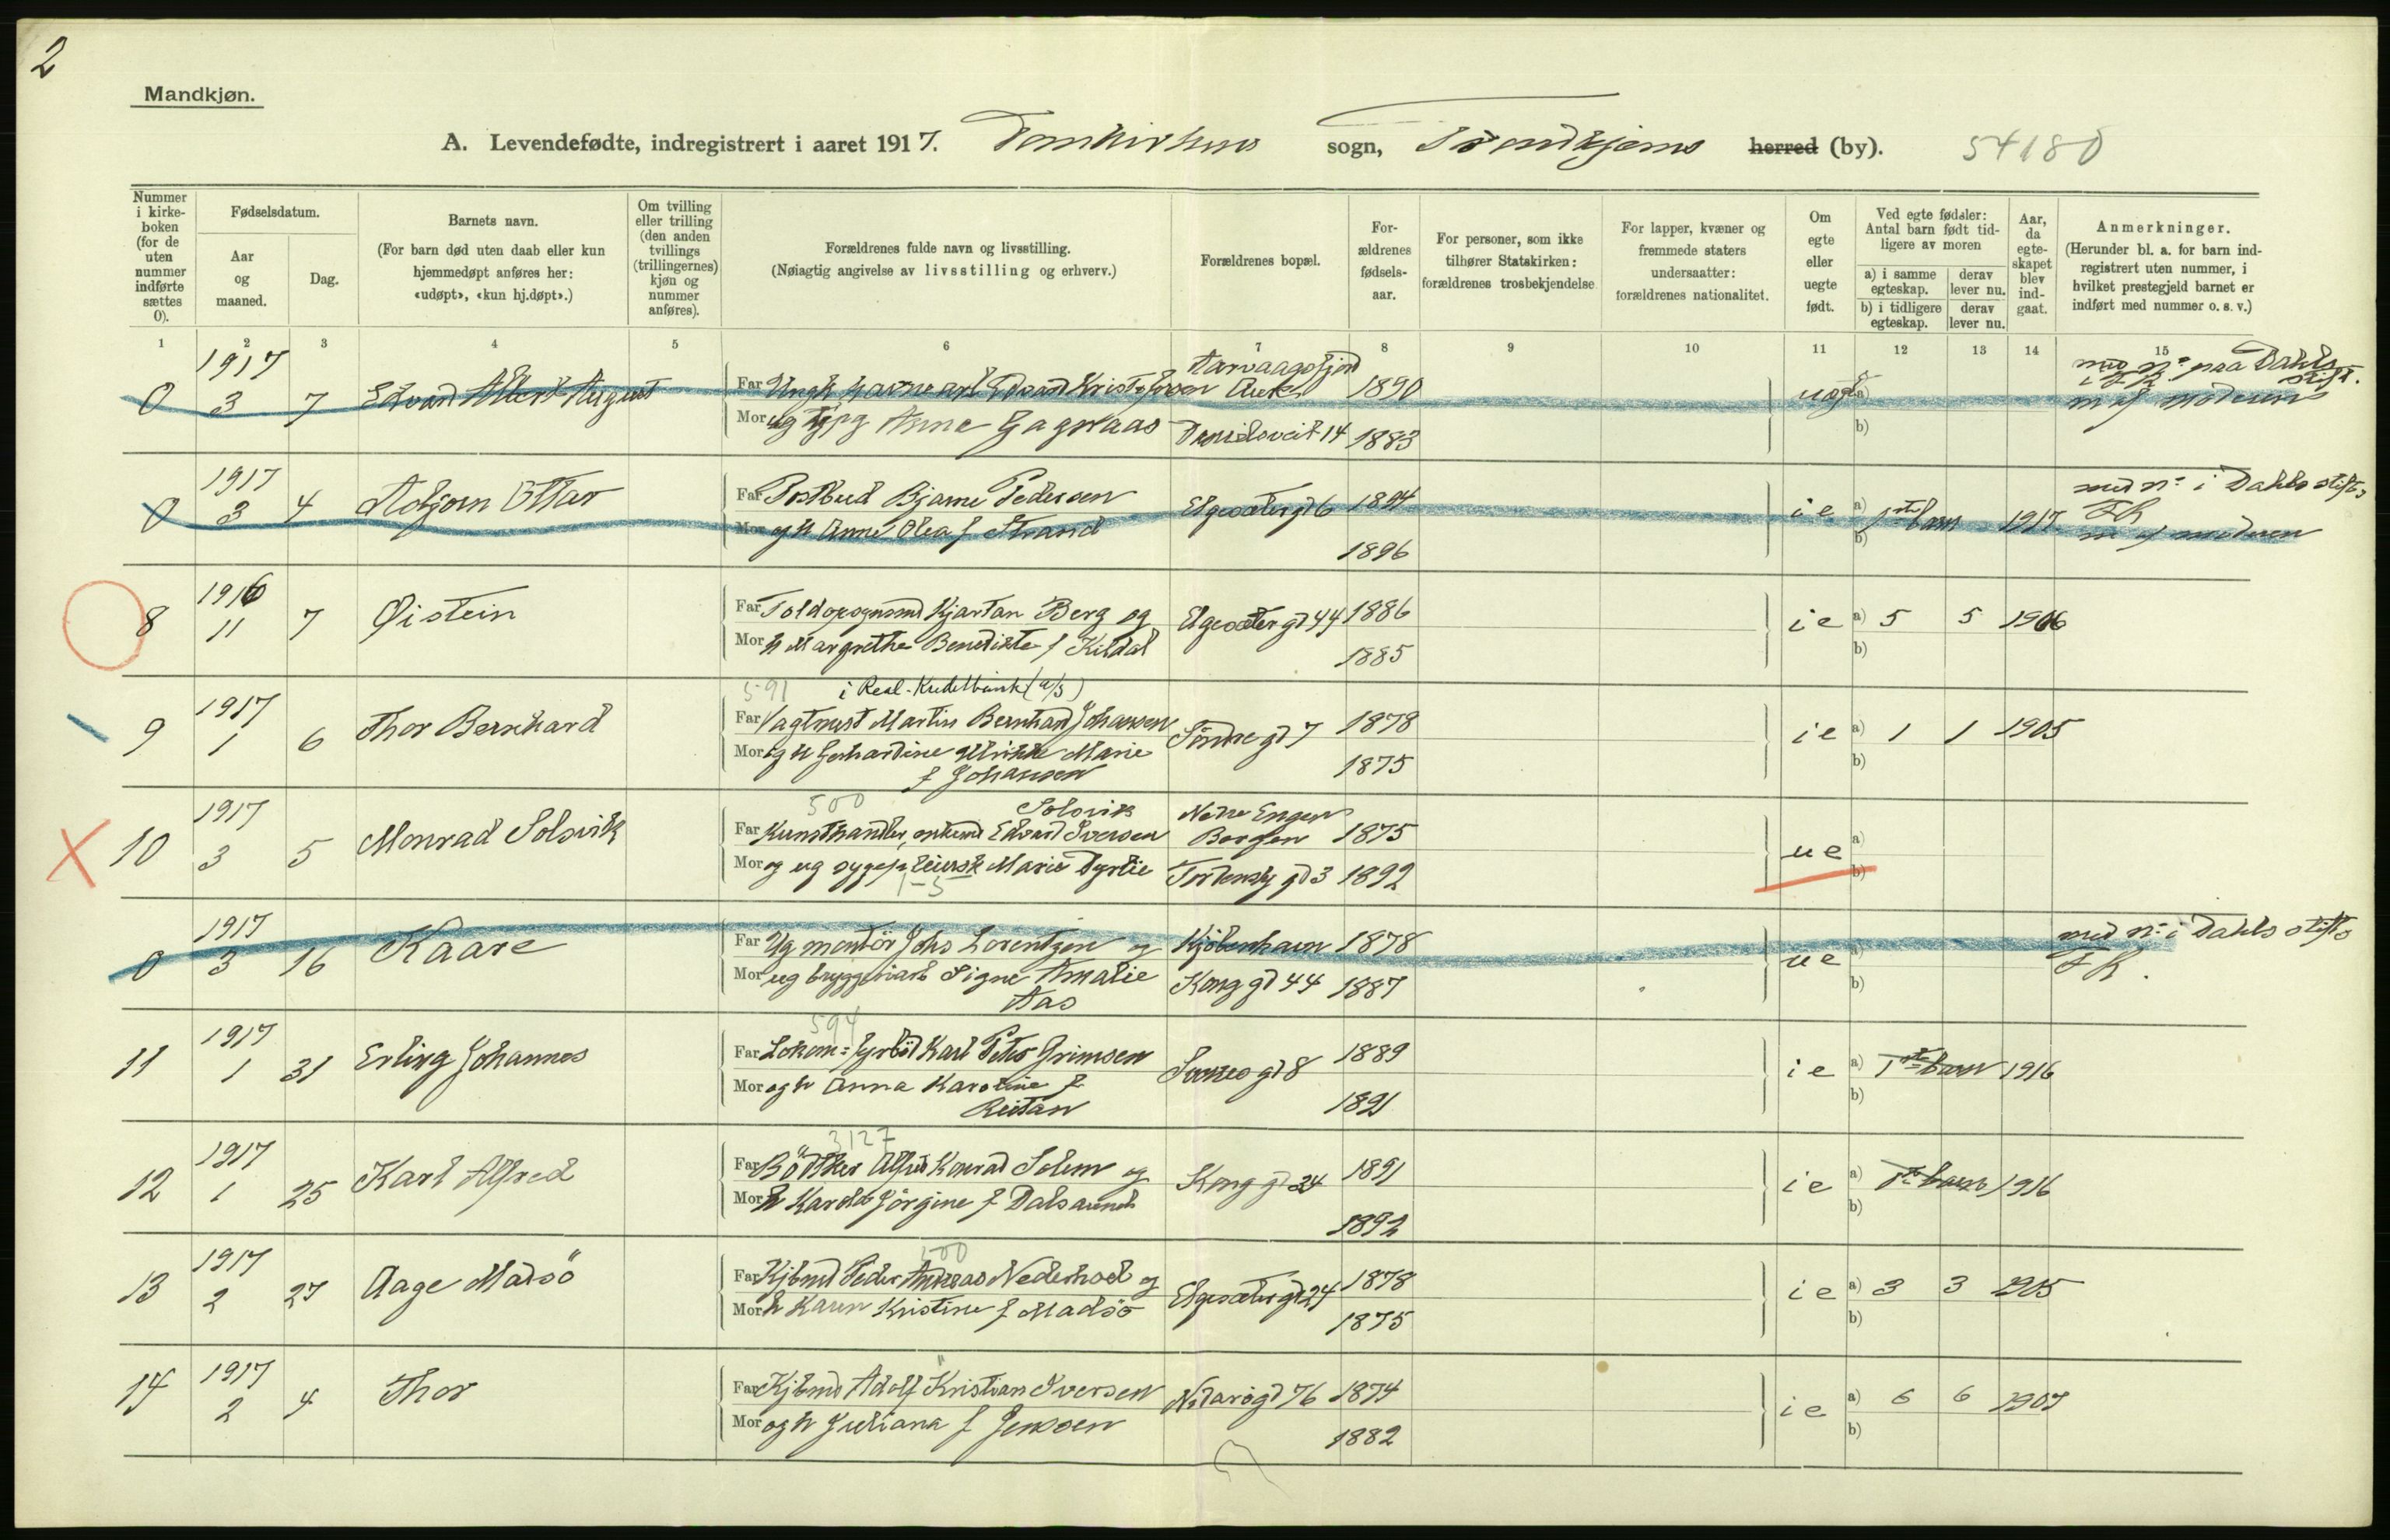 2
Mandkjøn.
A. Levendefødte, indregistrert i aaret 1917. Domkirkens sogn, Trondhjems herred (by). 54180
Nummer i kirke-boken (for de uten nummer indførte sættes 0).
Fødselsdatum.
Aar og maaned.
Dag.
Barnets navn.
(For barn død uten daab eller kun hjemmedøpt anføres her: «udøpt», «kun hj.døpt».)
Om tvilling eller trilling (den anden tvillings (trillingernes) kjøn og nummer anføres).
Forældrenes fulde navn og livsstilling.
(Nøiagtig angivelse av livsstilling og erhverv.)
Forældrenes bopæl.
For-ældrenes fødsels-aar.
For personer, som ikke tilhører Statskirken: forældrenes trosbekjendelse
For lapper, kvæner og fremmede staters undersaatter: forældrenes nationalitet.
Om egte eller uegte født.
Ved egte fødsler: Antal barn født tid-ligere av moren
a) i samme egteskap.
derav lever nu.
b) i tidligere egteskap.
derav lever nu.
Aar, da egte-skapet blev ind-gaat.
Anmerkninger.
(Herunder bl. a. for barn ind-registrert uten nummer, i hvilket prestegjeld barnet er indført med nummer o. s. v.)
1 2 3 4 5 6 7 8 9 10 11 12 13 14 15
0 1917 3 7 Edvard Albert August
Far Ungk Edvard Kristofersen 1890
Mor og Anna 14 1883
a)
b)
med no paa Dahls stift.
0 1917 3 4 Asbjørn Ottar
Far Postbud Bjarne Pedersen Elgesætergt 6 1894
Mor og h Anne Olea f Strand 1896
ie a) 1ste barn 1917
b)
med no i Dahls stifts
F.K.
m af moderen
8 1916 11 7 Øistein
Far Toldopsynsmd Kjartan Berg og Elgesætergt 44 1886
Mor h Margrethe Benedikte f Kildal 1885
ie a) 5 5 1906
b)
591 i Real-Kreditbank (a/s)
9 1917 1 6 Thor Bernhard
Far Vagtmest Martin Bernhard Johansen Söndregt 7 1878
Mor og h Gerhardine Ulrikke Marie 1875
f Johansen
ie a) 1 1 1905
b)
500
10 1917 3 5 Monrad Solsvik
Solsvik Nedre Engen
Far Kunsthandler, enkemd Edvard Iversen Bergen 1875
Mor og ug sygepleiersk Marie Dyrlie Tordenskj gt 3 1892
1-5
ue a)
b)
0 1917 3 16 Kaare
Far Ug montör Johs Lorentzen og Kjöbenhavn 1878
Mor ug bryggeriarb Signe Amalie Konggt 44 1887
Aas
ue a)
b)
med no i Dahls stifts
F.K.
594
11 1917 1 31 Erling Johannes
Far Lokom: fyrböd Karl Peter Grimsen Sverresgt 8 1889
Mor og h Anna Karoline f 1891
Reitan
ie a) 1ste barn 1916
b)
3127
12 1917 1 25 Karl Alfred
Far Bödtker Alfred Konrad Solem og Konggt 24 1891
Mor h Jörgine f Dalsaunet 1892
ie a) 1ste barn 1916
b)
500
13 1917 2 27 Aage Madsö
Far Kjbmd Peder Andreas Nederhoel og Elgesætergt 24 1878
Mor h Karen Kristine f Madsö 1875
ie a) 3 3 1905
b)
"
14 1917 2 4 Thor
Far Kjbmd Adolf Kristian Iversen Nidarösgt 76 1874
Mor og h Juliana f Jenssen 1882
ie a) 6 6 1907
b)